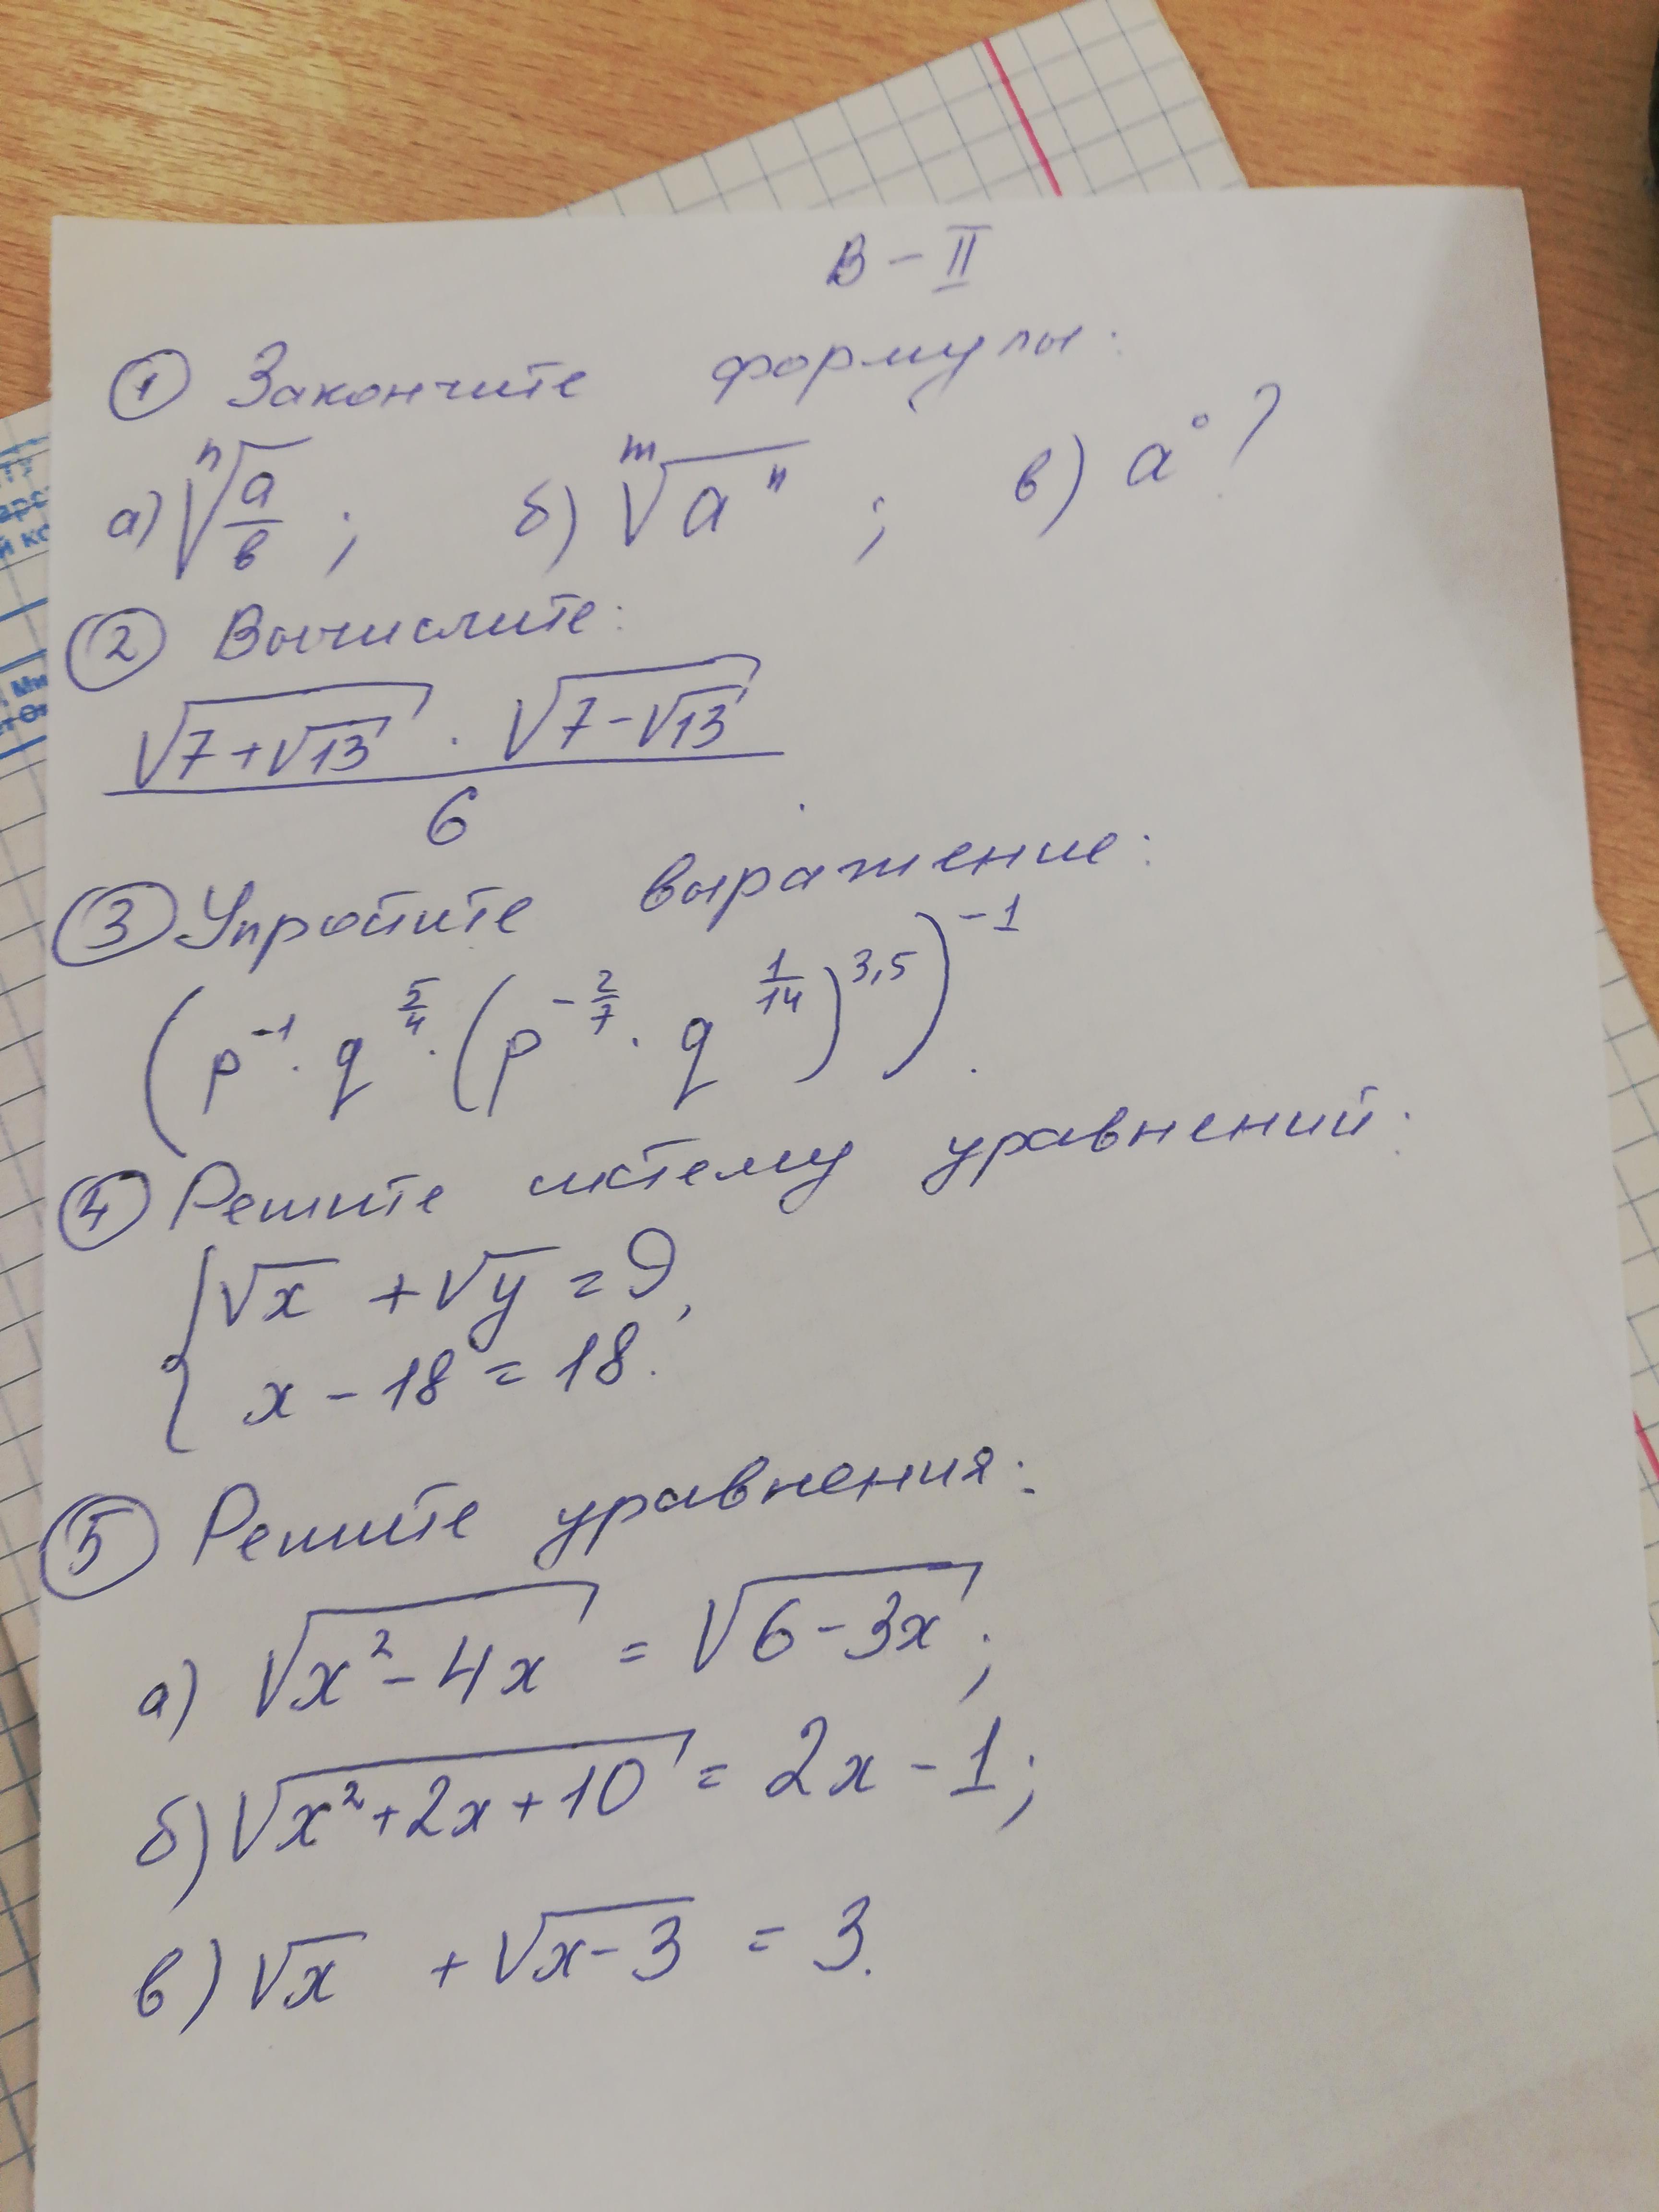 В - II
① Закончите формулы:
а) ⁿ√(a/в) ; б) ᵐ√(aⁿ) ; в) a° ?
② Вычислите:
(√(7+√13) · √(7-√13)) / 6
③ Упростите выражение:
(p⁻¹ · q^(5/4) · (p^(-2/7) · q^(1/14))^(3,5))⁻¹.
④ Решите систему уравнений:
{ √x + √y = 9,
x - 18 = 18.
⑤ Решите уравнения:
а) √(x² - 4x) = √(6 - 3x);
б) √(x² + 2x + 10) = 2x - 1;
в) √x + √(x - 3) = 3.